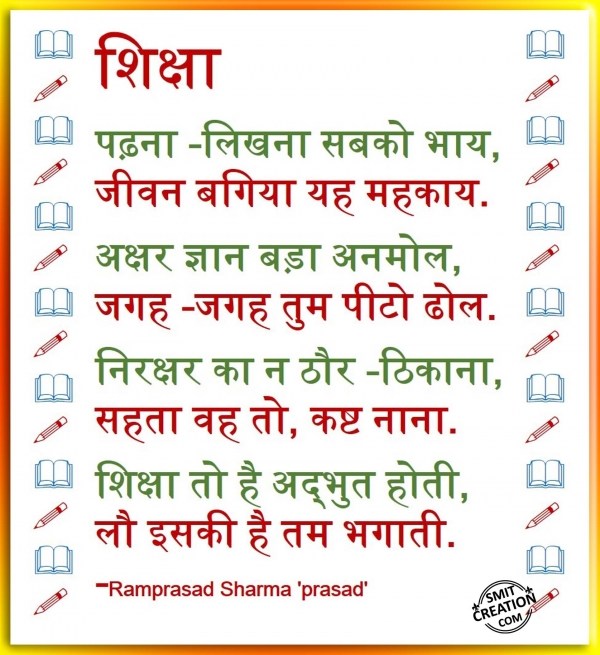 शिक्षा
पढ़ना -लिखना सबको भाय,
जीवन बगिया यह महकाय.
अक्षर ज्ञान बड़ा अनमोल,
जगह -जगह तुम पीटो ढोल.
निरक्षर का न ठौर -ठिकाना,
सहता वह तो, कष्ट नाना.
शिक्षा तो है अद्‌भुत होती,
लौ इसकी है तम भगाती.
-Ramprasad Sharma 'prasad'
SMIT
CREATION
COM